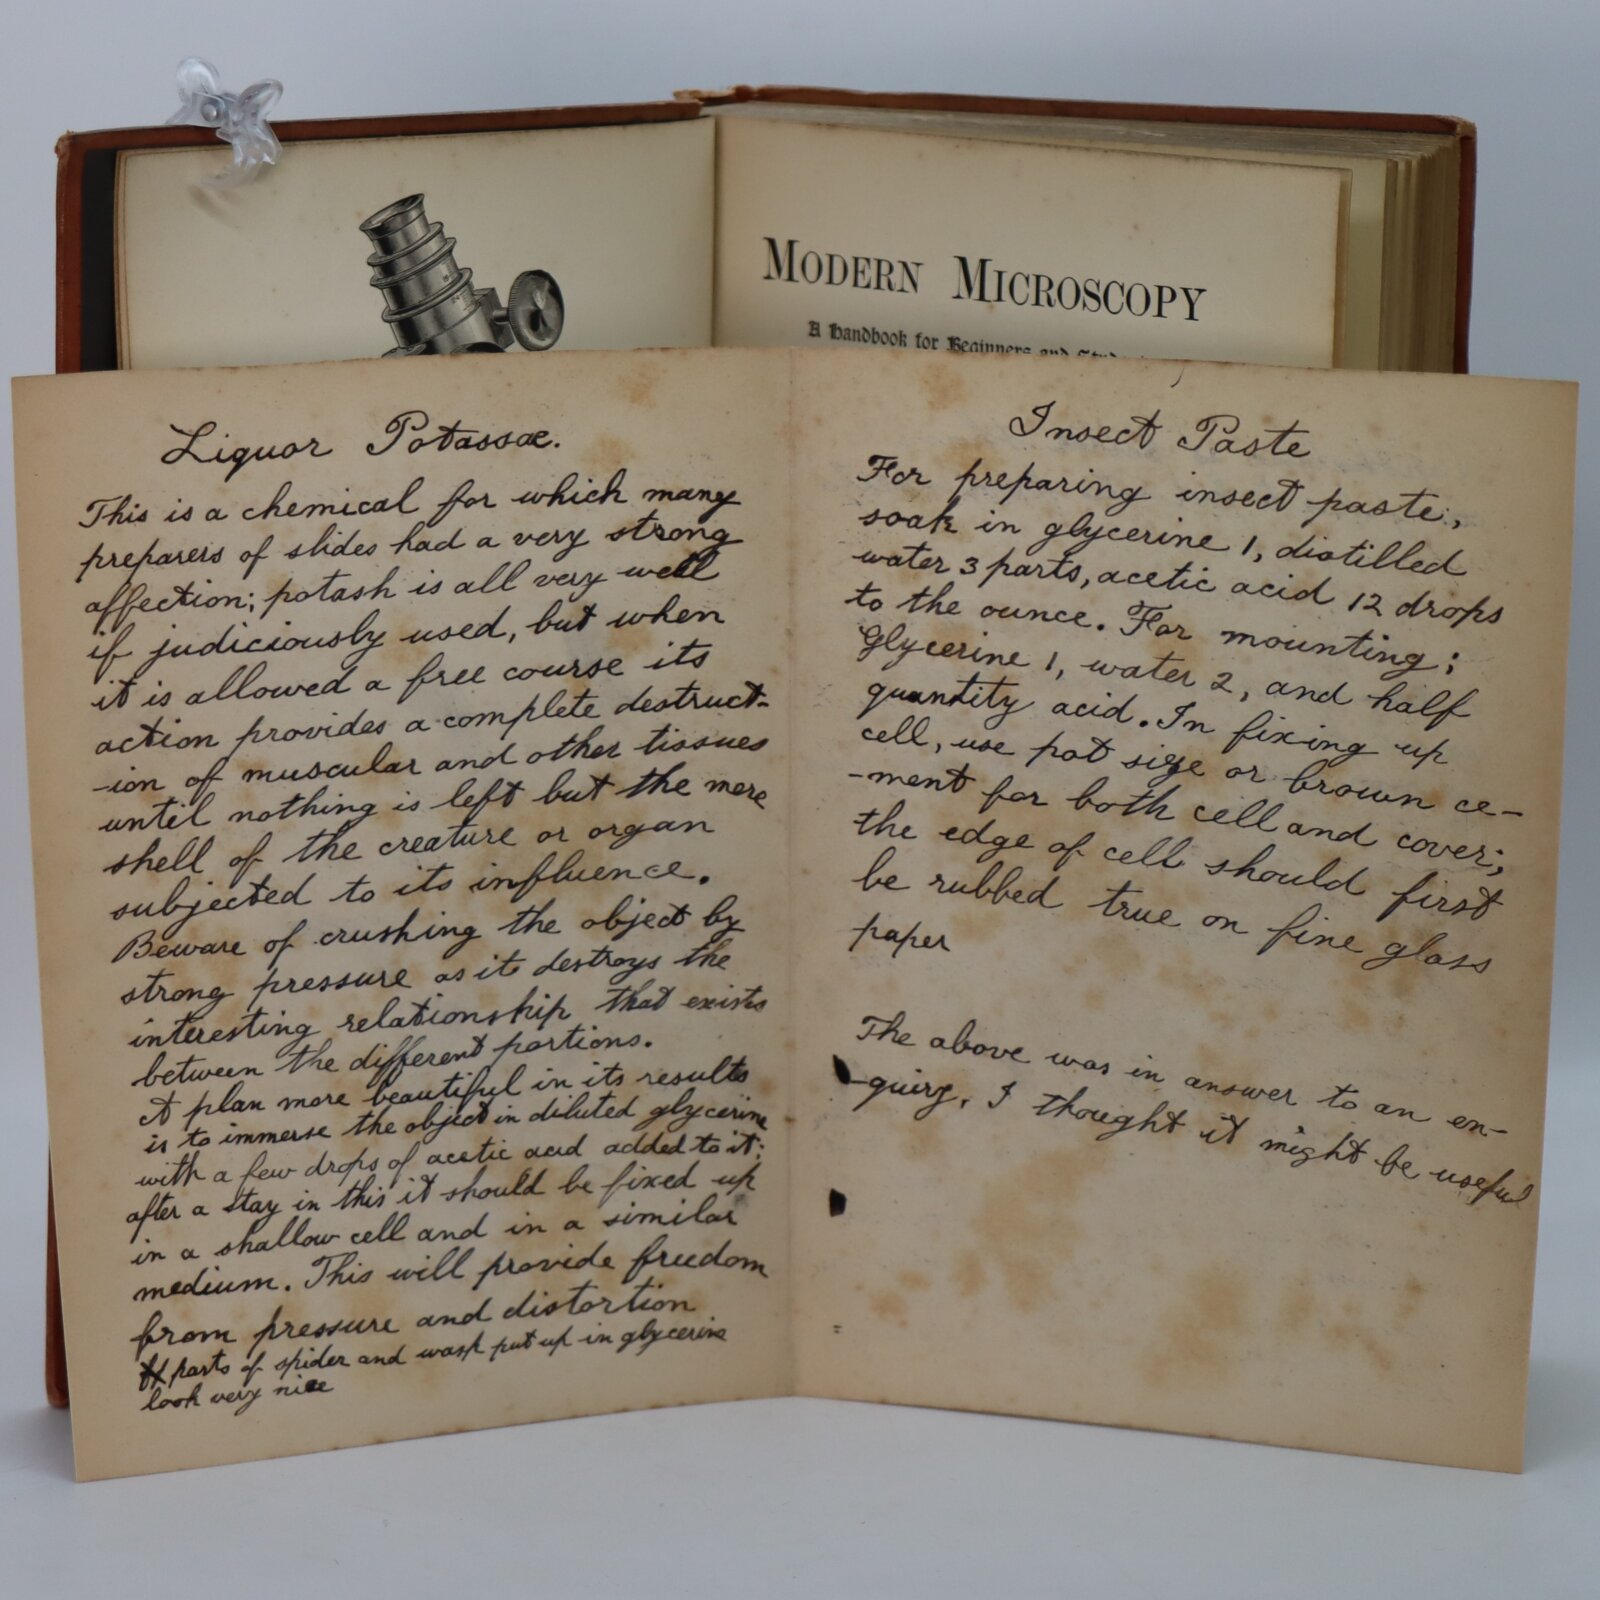 MODERN MICROSCOPY
A Handbook for Beginners and
Liquor Potassae.
This is a chemical for which many
preparers of slides had a very strong
affection; potash is all very well
if judiciously used, but when
it is allowed a free course its
action provides a complete destruct-
-ion of muscular and other tissues
until nothing is left but the mere
shell of the creature or organ
subjected to its influence.
Beware of crushing the object by
strong pressure as it destroys the
interesting relationship that exists
between the different portions.
A plan more beautiful in its results
is to immerse the object in diluted glycerine
with a few drops of acetic acid added to it;
after a stay in this it should be fixed up
in a shallow cell and in a similar
medium. This will provide freedom
from pressure and distortion
parts of spider and wasp put up in glycerine
look very nice
Insect Paste
For preparing insect paste,
soak in glycerine 1, distilled
water 3 parts, acetic acid 12 drops
to the ounce. For mounting;
Glycerine 1, water 2, and half
quantity acid. In fixing up
cell, use pot size or brown ce-
-ment for both cell and cover;
the edge of cell should first
be rubbed true on fine glass
paper
The above was in answer to an en-
-quiry, I thought it might be useful